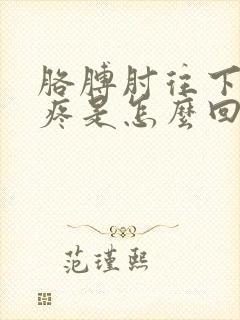 胳膊肘往下
疼是怎麼回
范瑾熙